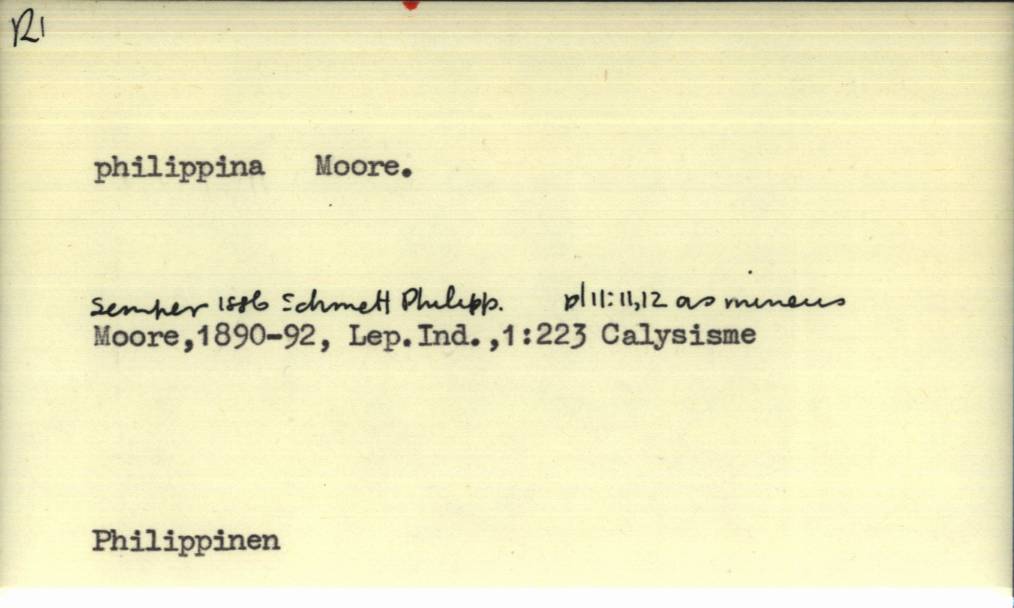 R1
philippina Moore.
Semper 1886 Schmett Philipp. pl 11:11,12 as mineus
Moore,1890-92, Lep.Ind.,1:223 Calysisme
Philippinen